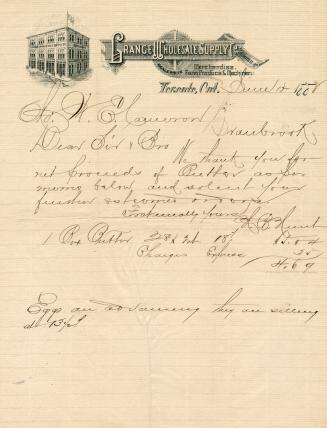 GRANGE WHOLESALE SUPPLY Co.
Merchandise,
Farm Produce & Machinery.
Toronto, Ont. June 12 1888
W. E. Cameron
Cranbrook
Dear Sir & Bro
We thank you for
net proceeds of Butter as per
memo below and solicit your
further
Fraternally yours
R. Y. Hunt
1 Box Butter 28 lb 18 $5.04
Charges Express 35
4.69
Eggs are advancing they are selling
at 13½